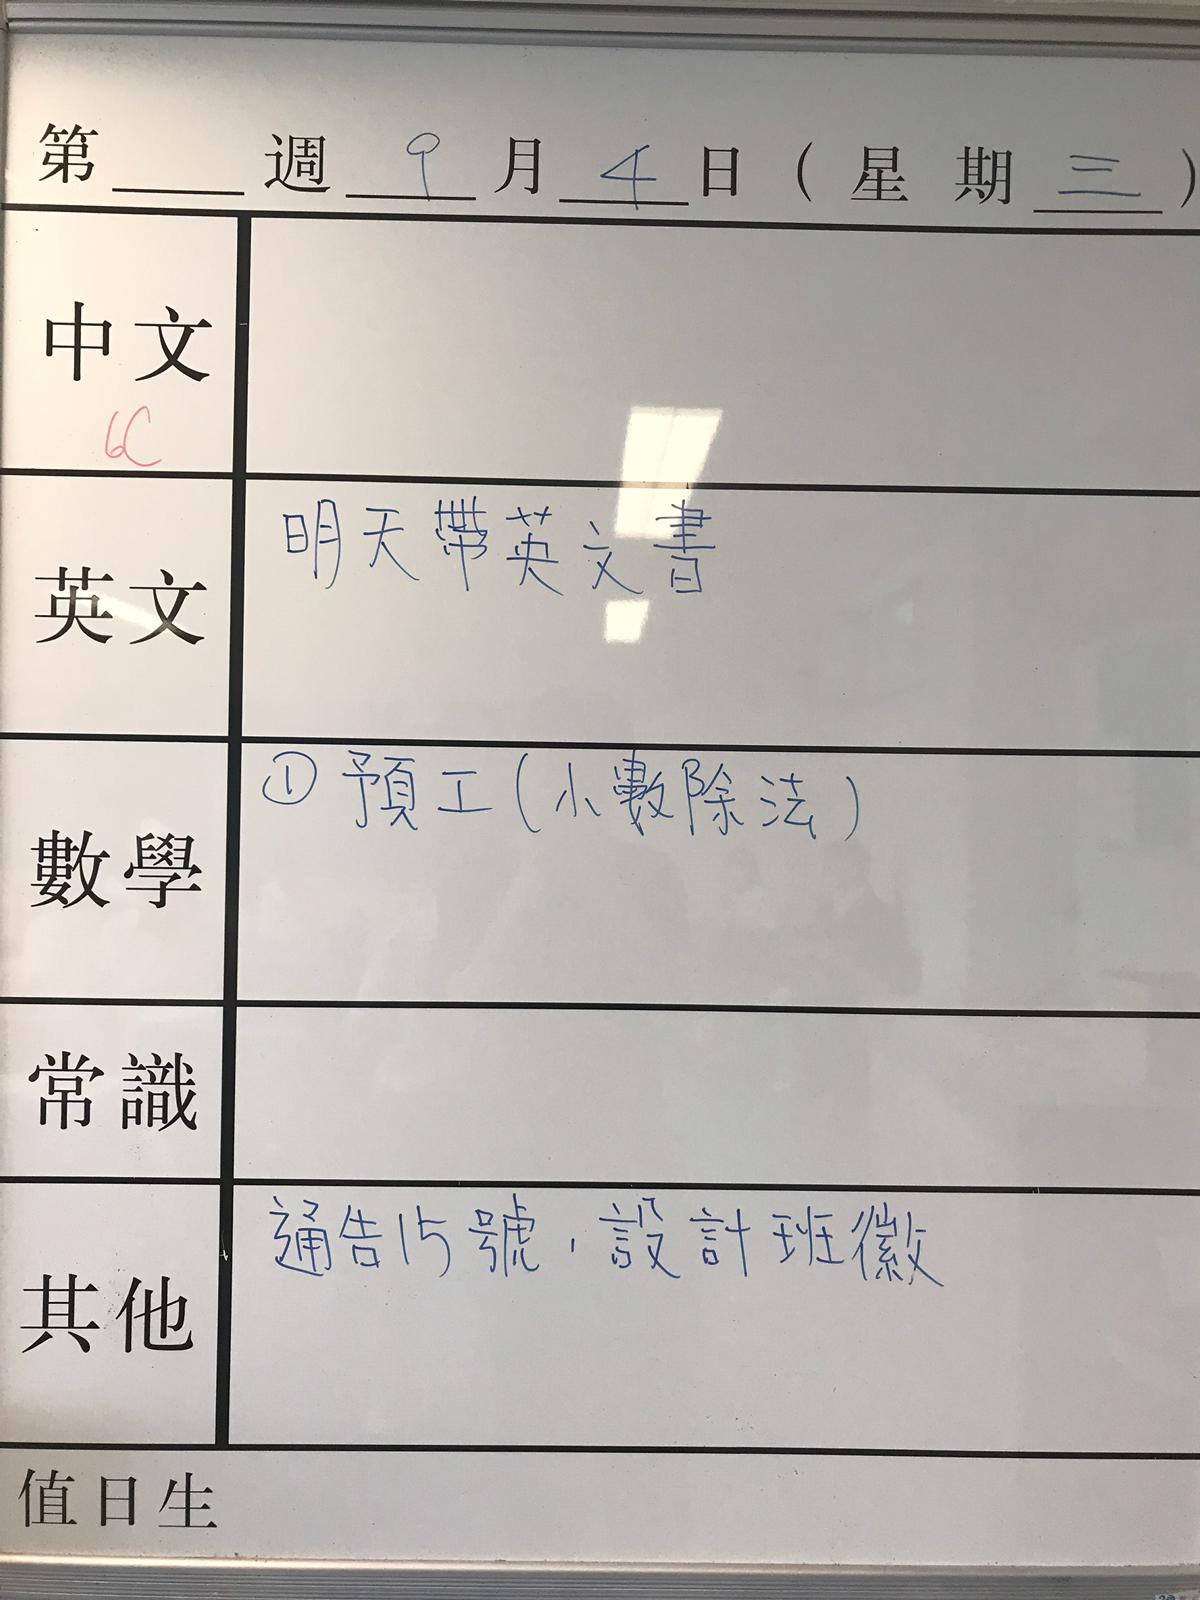 第 週 9 月 4 日 ( 星 期 三 )
中文
6C
英文
明天帶英文書
數學
① 預工(小數除法)
常識
其他
通告15號,設計班徽
值日生